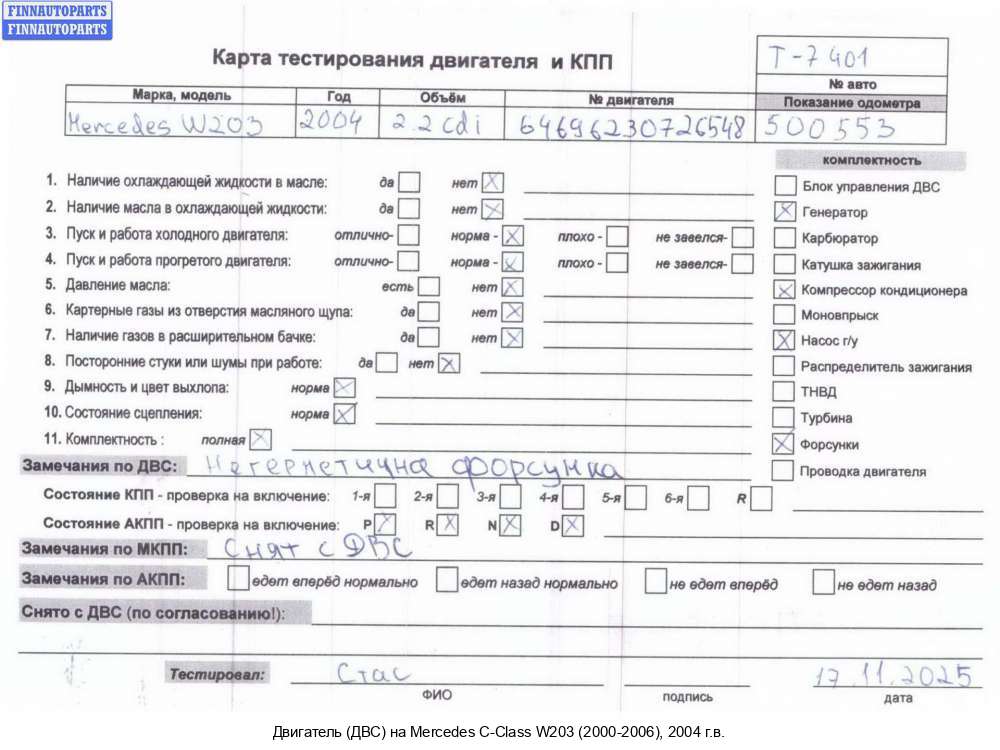 FINNAUTOPARTS
FINNAUTOPARTS
Карта тестирования двигателя и КПП
T-7401
№ авто
Марка, модель Год Объём № двигателя Показание одометра
Mercedes W203 2004 2.2 cdi 64696230726548 500553
комплектность
1. Наличие охлаждающей жидкости в масле: да нет
Блок управления ДВС
2. Наличие масла в охлаждающей жидкости: да нет
Генератор
3. Пуск и работа холодного двигателя: отлично- норма - плохо - не завелся-
Карбюратор
4. Пуск и работа прогретого двигателя: отлично- норма - плохо - не завелся-
Катушка зажигания
5. Давление масла: есть нет
Компрессор кондиционера
6. Картерные газы из отверстия масляного щупа: да нет
Моновпрыск
7. Наличие газов в расширительном бачке: да нет
Насос г/у
8. Посторонние стуки или шумы при работе: да нет
Распределитель зажигания
9. Дымность и цвет выхлопа: норма
ТНВД
10. Состояние сцепления: норма
Турбина
11. Комплектность : полная
Форсунки
Замечания по ДВС: Негерметична форсунка
Проводка двигателя
Состояние КПП - проверка на включение: 1-я 2-я 3-я 4-я 5-я 6-я R
Состояние АКПП - проверка на включение: P R N D
Замечания по МКПП: Снят с ДВС
Замечания по АКПП: едет вперёд нормально едет назад нормально не едет вперёд не едет назад
Снято с ДВС (по согласованию!):
Тестировал: Стас 17.11.2025
ФИО подпись дата
Двигатель (ДВС) на Mercedes C-Class W203 (2000-2006), 2004 г.в.